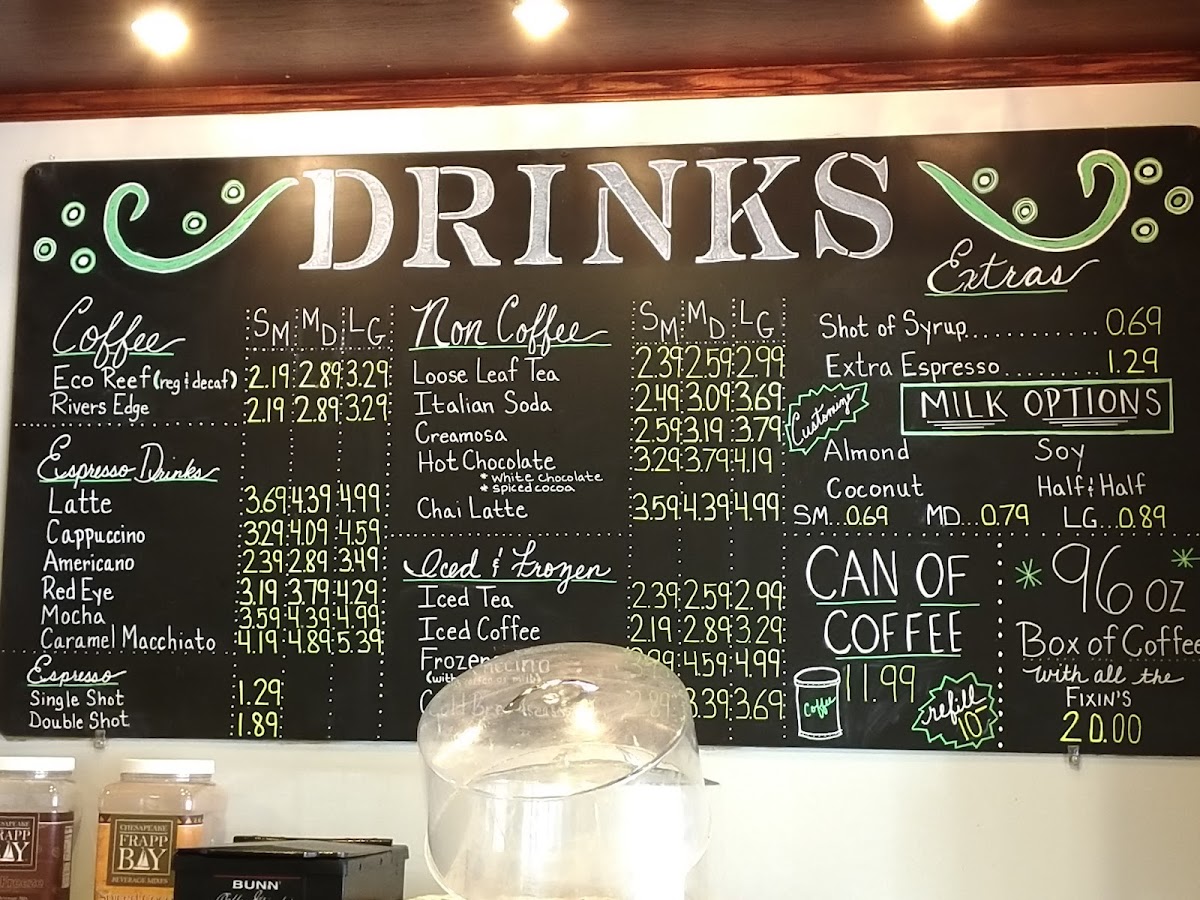 DRINKS
Coffee SM MD LG
Eco Reef (reg & decaf) 2.19 2.89 3.29
Rivers Edge 2.19 2.89 3.29
Espresso Drinks
Latte 3.69 4.39 4.99
Cappuccino 3.29 4.09 4.59
Americano 2.39 2.89 3.49
Red Eye 3.19 3.79 4.29
Mocha 3.59 4.39 4.99
Caramel Macchiato 4.19 4.89 5.39
Espresso
Single Shot 1.29
Double Shot 1.89
Non Coffee SM MD LG
Loose Leaf Tea 2.39 2.59 2.99
Italian Soda 2.49 3.09 3.69
Creamosa 2.59 3.19 3.79
Hot Chocolate 3.29 3.79 4.19
* white chocolate
* spiced cocoa
Chai Latte 3.59 4.39 4.99
Iced & Frozen
Iced Tea 2.39 2.59 2.99
Iced Coffee 2.19 2.89 3.29
Frozen 4.59 4.99
3.39 3.69
Extras
Shot of Syrup.............. 0.69
Extra Espresso.......... 1.29
Customize
MILK OPTIONS
Almond Soy
Coconut Half & Half
SM...0.69 MD...0.79 LG...0.89
CAN OF
COFFEE
11.99
Coffee
refill
10
* 96 oz *
Box of Coffee
with all the
FIXIN'S
20.00
FRAPP
BAY
CHESAPEAKE
FRAPP
BAY
BEVERAGE MIXES
BUNN